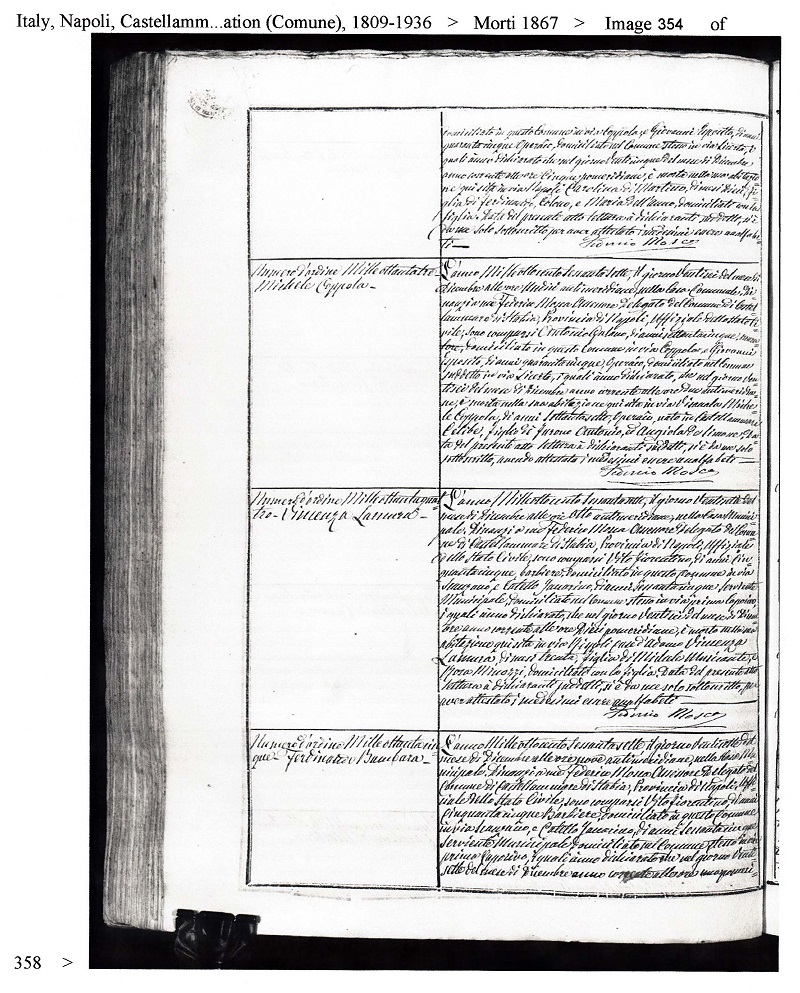 Italy, Napoli, Castellamm...ation (Comune), 1809-1936 > Morti 1867 > Image 354 of
domiciliato in questo Comune in via Coppola, e Giovanni Esposito, di anni
quarantacinque Operaio, domiciliato nel Comune stesso in via
quali anno dichiarato che nel giorno venticinque del mese di Dicembre
anno corrente alle ore Cinque pomeridiane, è morta nella sua abitazio
ne qui sita in via Napoli Carolina di Martino, di mesi dieci, fi
glia di Ferdinando, e Maria dell'Anno, domiciliati con la
figlia. Data del presente atto lettura à dichiaranti suddetti, si è
da me solo sottoscritto per aver attestato i medesimi essere analfabe
ti
Federico Mosca
Numero d'ordine Mille ottantatre
Michele Coppola
L'anno Mille ottocento sessantasette, il giorno Ventisei del mese di
Dicembre alle ore Undici antimeridiane, nella Casa Comunale, Di
nanzi a me Federico Mosca Assessore Delegato del Comune di Castel
lammare di Stabia, Provincia di Napoli, Uffiziale dello Stato Ci
vile, sono comparsi Antonio di anni settantacinque,
domiciliato in questo Comune in via Coppola, e Giovanni
Esposito, di anni quarantacinque, Operaio, domiciliato nel Comune
suddetto in via i quali anno dichiarato, che nel giorno Ven
tisei del mese di Dicembre anno corrente alle ore due antimeridia
ne, è morto nella sua abitazione qui sita in via Miche
le Coppola, di anni Settantasette, Operaio, nato in Castellammare
Celibe, figlio di furono Antonio, ed Angiola de Simone. Da
ta del presente atto lettura à dichiaranti suddetti, si è da me solo
sottoscritto, avendo attestato i medesimi essere analfabeti
Federico Mosca
Numero d'ordine Mille ottantaquat
tro - Vincenza Lamura
L'anno Mille ottocento sessantasette, il giorno Ventisette del
mese di Dicembre alle ore Otto antimeridiane, nella Casa Munici
pale, Dinanzi a me Federico Mosca Assessore Delegato del Comu
ne di Castellammare di Stabia, Provincia di Napoli, Uffiziale
dello Stato Civile, sono comparsi Vito Fiorentino, di anni Cin
quantacinque, barbiere, domiciliato in questo Comune in via
Scanzano, e Catello Janorino, di anni Sessantacinque Serviente
Municipale, domiciliato nel Comune stesso in via prima Caporivo,
i quali anno dichiarato, che nel giorno Ventisei del mese di Dicem
bre anno corrente alle ore Dieci pomeridiane, è morta nella sua
abitazione qui sita in via Vincenza
Lamura, di mesi Trenta, figlia di Michele e
Rosa domiciliati con la figlia. Data del presente atto
lettura à dichiaranti suddetti, si è da me solo sottoscritto, per
aver attestato i medesimi essere analfabeti
Federico Mosca
Numero d'ordine Mille ottantacin
que Ferdinando Bambara
L'anno Mille ottocento Sessantasette il giorno Ventisette del
mese di Dicembre alle ore nove antimeridiane, nella Casa Mu
nicipale, Dinanzi a me Federico Mosca Assessore Delegato del
Comune di Castellammare di Stabia, Provincia di Napoli, Uffi
ziale dello Stato Civile, sono comparsi Vito Fiorentino, di anni
Cinquantacinque Barbiere, domiciliato in questo Comune
in via Scanzano, e Catello Janorino, di anni Sessantacinque
Serviente Municipale domiciliato nel Comune stesso in via
prima Caporivo, i quali anno dichiarato che nel giorno Venti
sette del mese di Dicembre anno corrente alle ore una pomeri
358 >